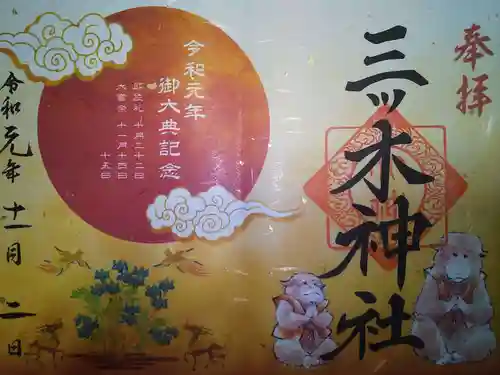 奉拝
三ツ木神社
令和元年
御大典記念
即位礼 十月二十二日
大嘗祭 十一月十四日
十五日
令和元年十一月二日